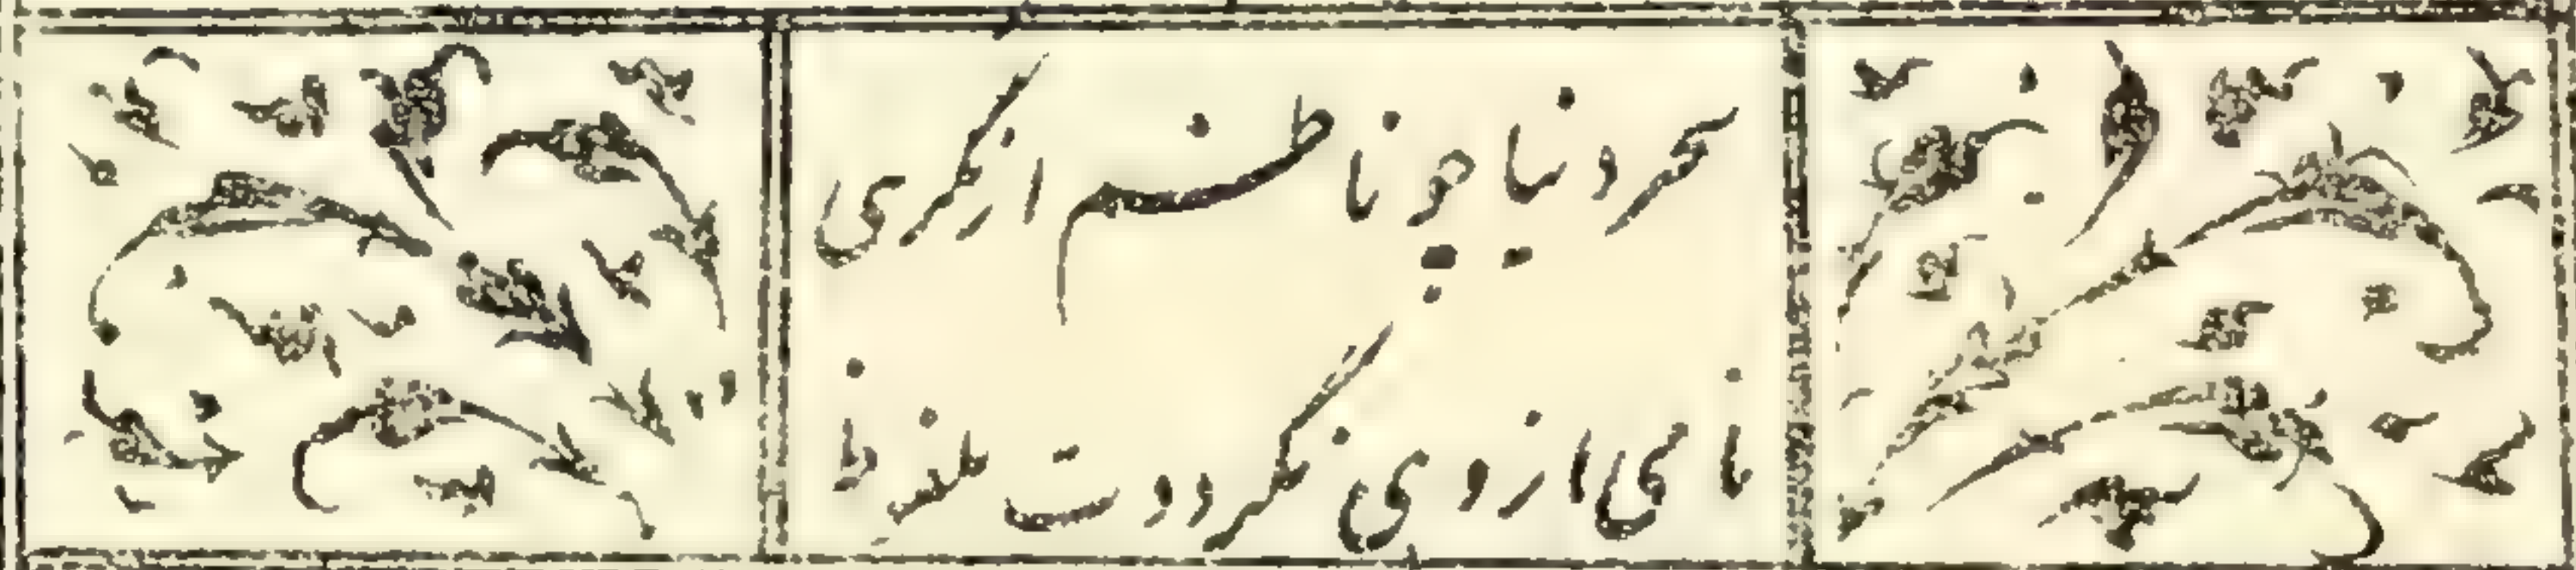 سحر دنیا چو ناظم از گری
نامی از وی نگردوت ملفوظ